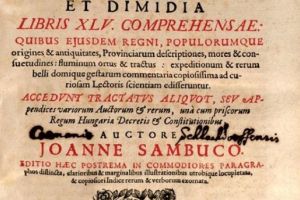 ET DIMIDIA
LIBRIS XLV. COMPREHENSAE:
QUIBUS EJUSDEM REGNI, POPULORUMQUE
origines & antiquitates, Provinciarum descriptiones, mores & con-
suetudines: fluminum ortus & tractus: expeditionum & rerum
belli domique gestarum commentaria copiosissima ad cu-
riosam Lectoris scientiam edisseruntur.
ACCEDUNT TRACTATUS ALIQUOT, SEU AP-
pendices variorum Auctorum & rerum, unà cum priscorum
Regum Hungaria Decretis & Constitutionibus
AUCTORE
JOANNE SAMBUCO.
EDITIO HÆC POSTREMA IN COMMODIORES PARAGRA-
phos distincta, clarioribus & marginalibus illustrationibus utrobique locupletata,
& copiosiori Indice rerum & verborum exornata.